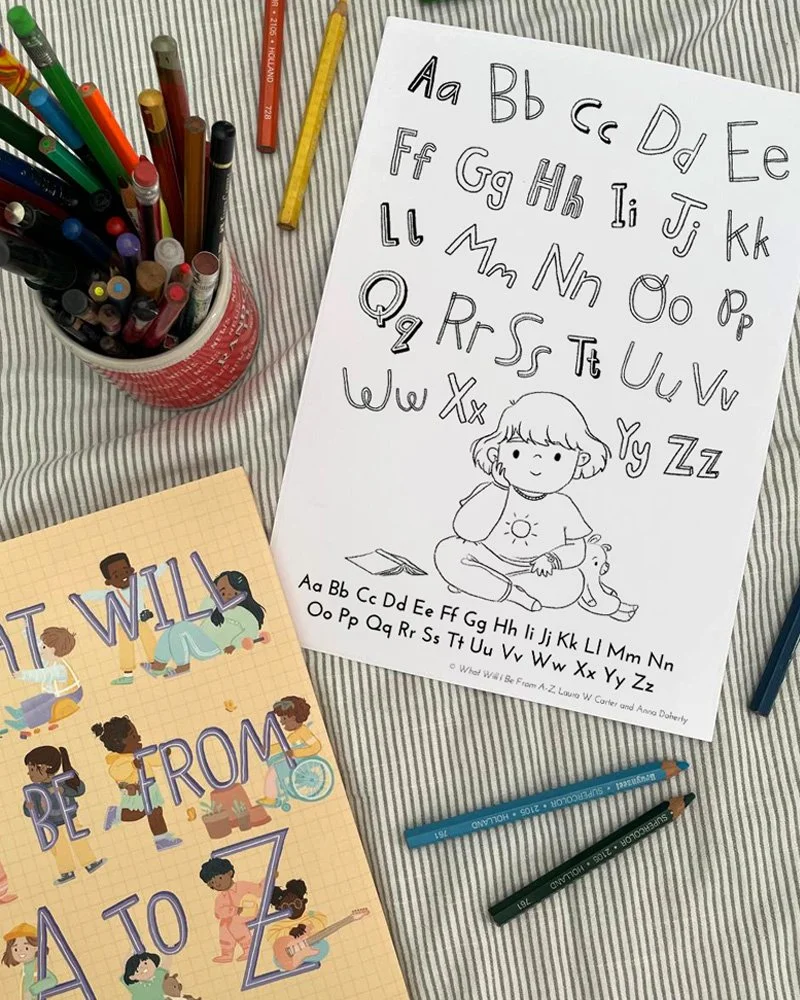 R • 2105 • HOLLAND 728
Aa Bb Cc Dd Ee
Ff Gg Hh Ii Jj kk
Ll Mm Nn Oo Pp
Qq Rr Ss Tt Uu Vv
Ww Xx Yy Zz
Aa Bb Cc Dd Ee Ff Gg Hh Ii Jj Kk Ll Mm Nn
Oo Pp Qq Rr Ss Tt Uu Vv Ww Xx Yy Zz
© What Will I Be From A-Z, Laura W Carter and Anna Doherty
AT WILL
BE FROM
A TO Z
Bruynzeel • SUPERCOLOR • 2105 • HOLLAND 761
SUPERCOLOR • 2105 • HOLLAND 761